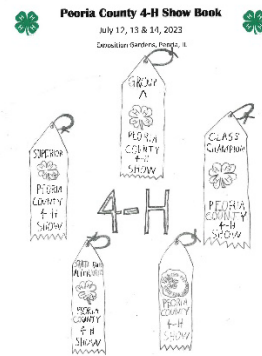 Peoria County 4-H Show Book
July 12, 13 & 14, 2023
Exposition Gardens, Peoria, IL
GROUP
A
PEORIA
COUNTY
4-H
SHOW
SUPERIOR
PEORIA
COUNTY
4-H
SHOW
CLASS
CHAMPION
PEORIA
COUNTY
4-H
SHOW
4-H
PEORIA
COUNTY
4-H
SHOW
PEORIA
COUNTY
4-H
SHOW